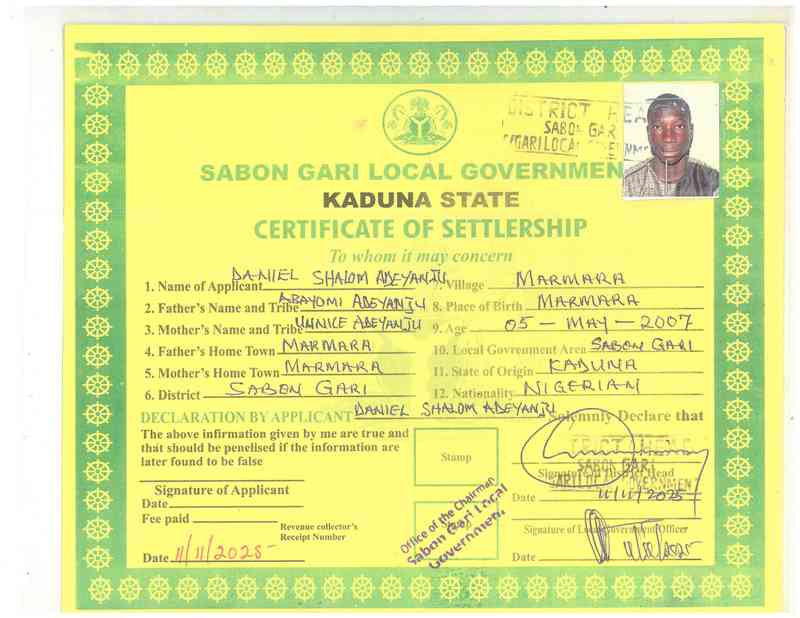 DISTRICT HEAD
SABON GARI
SABON GARI LOCAL GOVERNMENT
KADUNA STATE
CERTIFICATE OF SETTLERSHIP
To whom it may concern
1. Name of Applicant DANIEL SHALOM ADEYANJU
2. Father's Name and Tribe ABAYOMI ADEYANJU
3. Mother's Name and Tribe UHNICE ADEYANJU
4. Father's Home Town MARMARA
5. Mother's Home Town MARMARA
6. District SABON GARI
7. Village MARMARA
8. Place of Birth MARMARA
9. Age 05 - MAY - 2007
10. Local Govrenment Area SABON GARI
11. State of Origin KADUNA
12. Nationality NIGERIAN
DECLARATION BY APPLICANT DANIEL SHALOM ADEYANJU Solemnly Declare that
The above infirmation given by me are true and
that should be penelised if the information are
later found to be false
Signature of Applicant
Date
Fee paid
Revenue collector's
Receipt Number
Date 11/11/2025
Stamp
Office of the Chairman
Sabon Gari Local
Government
SABON GARI
Signature of District Head
Date 11/11/2025
Signature of Local Government Officer
Date